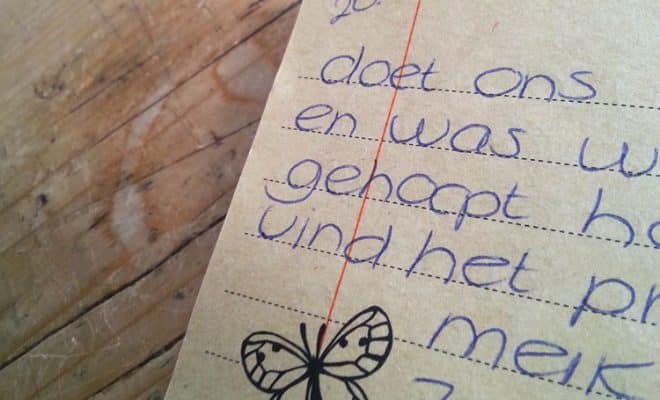 20.
doet ons
en was w
gehoopt ho
vind het pr
meik